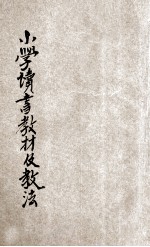 小學讀書教材及教法